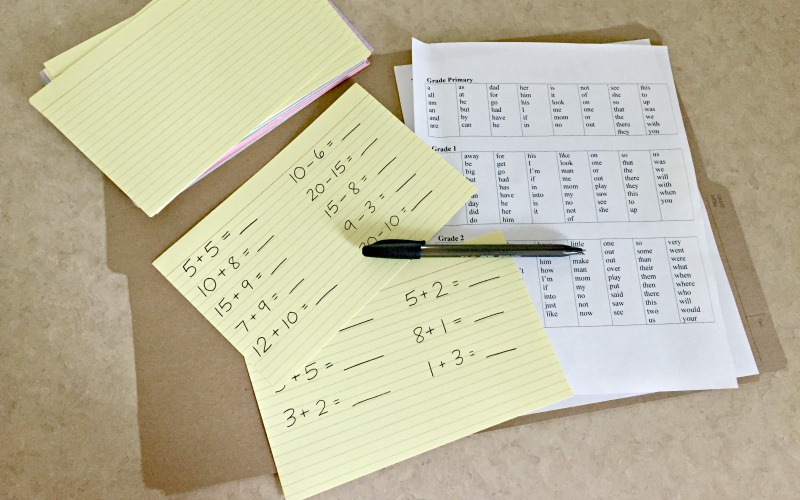 5 + 5 = __
10 + 8 = __
15 + 9 = __
7 + 9 = __
12 + 10 = __
10 - 6 = __
20 - 15 = __
15 - 8 = __
9 - 3 = __
- 10 = __
+ 5 = __
3 + 2 = __
5 + 2 = __
8 + 1 = __
1 + 3 = __
Grade Primary
a as dad her is not see this
all at for him it of she to
am be go his look on so up
an but had I me one that was
and by have if mom or the we
are can he in no out there with
they you
Grade 1
away for his like on so us
be get I look one that was
big go I'm man or the we
but had if me out there will
has in mom play they with
have into my saw this when
day he is no see to you
did her it not she up
do him of
Grade 2
little one so very
out some went
him make out than were
how man over their what
I'm mom play them when
if my put then where
into no said there who
just not saw this will
like now see two would
us your